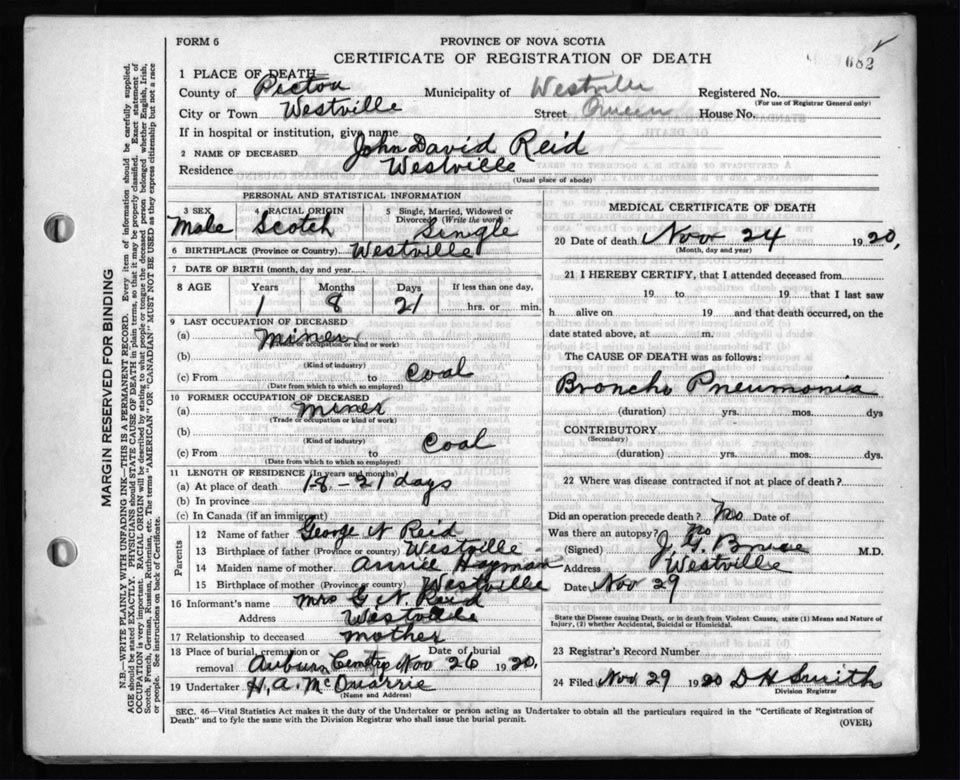 FORM 6
PROVINCE OF NOVA SCOTIA
CERTIFICATE OF REGISTRATION OF DEATH
682
1 PLACE OF DEATH
County of Pictou Municipality of Westville Registered No.
(For use of Registrar General only)
City or Town Westville Street Queen House No.
If in hospital or institution, give name
2 NAME OF DECEASED John David Reid
Residence Westville
(Usual place of abode)
PERSONAL AND STATISTICAL INFORMATION
3 SEX 4 RACIAL ORIGIN 5 Single, Married, Widowed or Divorced (Write the word)
Male Scotch Single
6 BIRTHPLACE (Province or Country) Westville
7 DATE OF BIRTH (month, day and year)
8 AGE Years Months Days If less than one day,
1 8 21 hrs. or min.
9 LAST OCCUPATION OF DECEASED
(a) Miner
(Trade or occupation or kind of work)
(b)
(Kind of industry)
(c) From to Coal
(Date from which to which so employed)
10 FORMER OCCUPATION OF DECEASED
(a) Miner
(Trade or occupation or kind of work)
(b)
(Kind of industry)
(c) From to Coal
(Date from which to which so employed)
11 LENGTH OF RESIDENCE (In years and months)
(a) At place of death 18 - 21 days
(b) In province
(c) In Canada (if an immigrant)
Parents
12 Name of father George N Reid
13 Birthplace of father (Province or country) Westville
14 Maiden name of mother Annie Hayman
15 Birthplace of mother (Province or country) Westville
16 Informant's name Mrs G N Reid
Address Westville
17 Relationship to deceased mother
18 Place of burial, cremation or removal Date of burial
Auburn Cemetry Nov 26 1920.
19 Undertaker H. A. McQuarrie
(Name and Address)
MEDICAL CERTIFICATE OF DEATH
20 Date of death Nov 24 1920,
(Month, day and year)
21 I HEREBY CERTIFY, that I attended deceased from
19 to 19 that I last saw
h alive on 19 and that death occurred, on the
date stated above, at m.
The CAUSE OF DEATH was as follows:
Broncho Pneumonia
(duration) yrs. mos. dys
CONTRIBUTORY
(Secondary)
(duration) yrs. mos. dys.
22 Where was disease contracted if not at place of death?
Did an operation precede death? No Date of
Was there an autopsy? No
(Signed) J. G. Bruce M.D.
Address Westville
Date Nov 29
State the Disease causing Death, or in death from Violent Causes, state (1) Means and Nature of Injury, (2) whether Accidental, Suicidal or Homicidal.
23 Registrar's Record Number
24 Filed Nov 29 1920 D H Smith
Division Registrar
SEC. 46—Vital Statistics Act makes it the duty of the Undertaker or person acting as Undertaker to obtain all the particulars required in the "Certificate of Registration of
Death" and to fyle the same with the Division Registrar who shall issue the burial permit.
(OVER)
MARGIN RESERVED FOR BINDING
N.B.—WRITE PLAINLY WITH UNFADING INK—THIS IS A PERMANENT RECORD. Every item of information should be carefully supplied.
AGE should be stated EXACTLY. PHYSICIANS should STATE CAUSE OF DEATH in plain terms, so that it may be properly classified. Exact statement of
OCCUPATION is very important. RACIAL ORIGIN will be described by stating to what people or tongue the deceased person belonged whether English, Irish,
Scotch, French, German, Russian, Ruthenian, etc. The terms "AMERICAN" OR "CANADIAN" MUST NOT BE USED as they express citizenship but not a race
See instructions on back of Certificate.